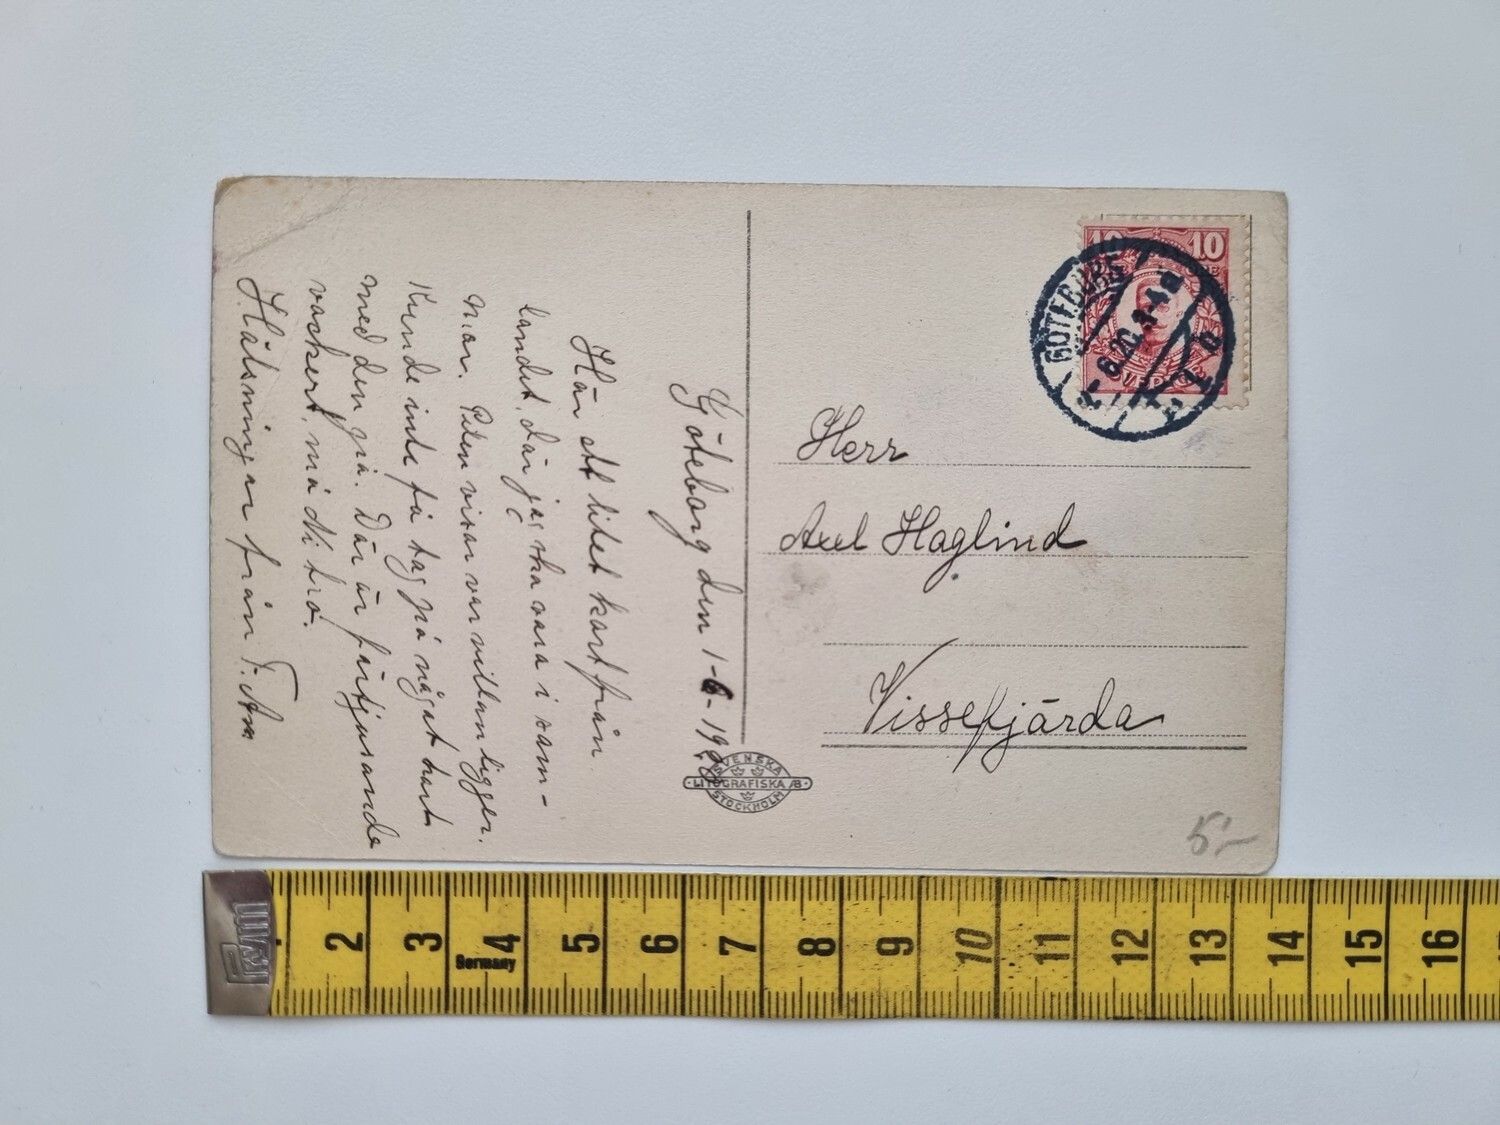 Göteborg den 1-6-19
Här ett litet kort från
landet, där jag ska vara i som-
mar. Pilen visar var villan ligger.
Kunde inte få tag på något kort
med den på. Där är förtjusande
vackert, må Ni tro.
Hälsningar från T. Am
10 10
SVERIGE
GÖTEBORG
1
Herr
Axel Haglind
Vissefjärda
SVENSKA
LITOGRAFISKA A/B
STOCKHOLM
5:-
2 3 4 5 6 7 8 9 10 11 12 13 14 15 16
Germany